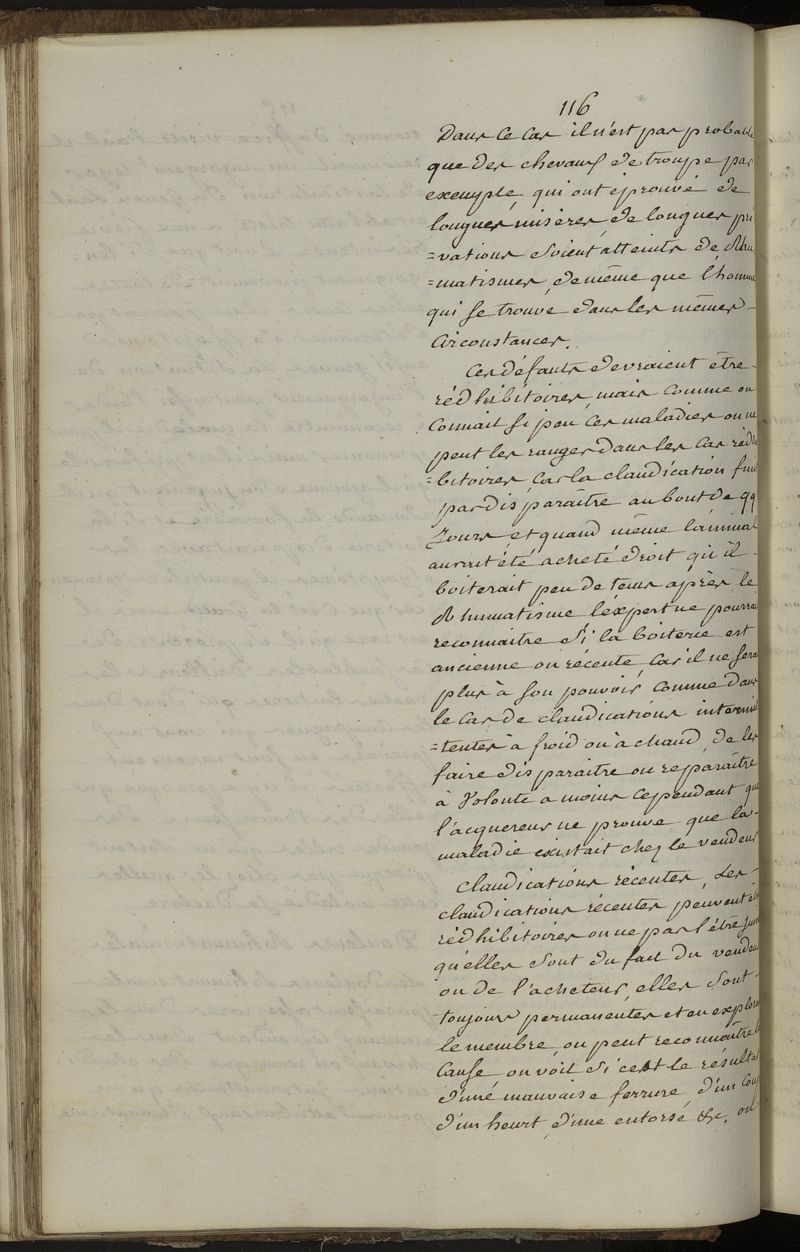 116
Dans ce cas il n'est pas probable
que des chevaux de troupe par
exemple, qui ont éprouvé de
longues misères, de longues pri
=vations soient atteints de Rhu
=matismes, de même que l'homme
qui se trouve dans les mêmes
circonstances.
Ces défauts devraient être
rédhibitoires, mais comme on
connait si peu ces maladies on ne
peut les ranger dans les cas rédhi
=bitoires, car la claudication finit
par disparaître au bout de qq
Jours et quand même l'animal
aurait été acheté droit qu'il
boiterait peu de tems après le
Rhumatisme l'éxpert ne pourra
reconnaitre si la boiterie est
ancienne ou récente, car il ne sera
plus à son pouvoir comme dans
le cas de claudications intermit
=tentes à froid ou à chaud, de les
faire disparaitre ou reparaître
à Volonté a moins cependant que
l'acquereur ne prouve que la
maladie existait chez le vendeur
Claudications récentes, Les
claudications récentes peuvent être
rédhibitoires ou ne pas l'être suiv
qu'elles sont du fait du vendeur
ou de l'acheteur, elles sont
toujours permanentes et en explora
le membre, on peut reconnaître la
Cause on voit si cest le résultat
d'une mauvaise ferrure, d'un coup
d'un heurt, d'une entorse &c. on